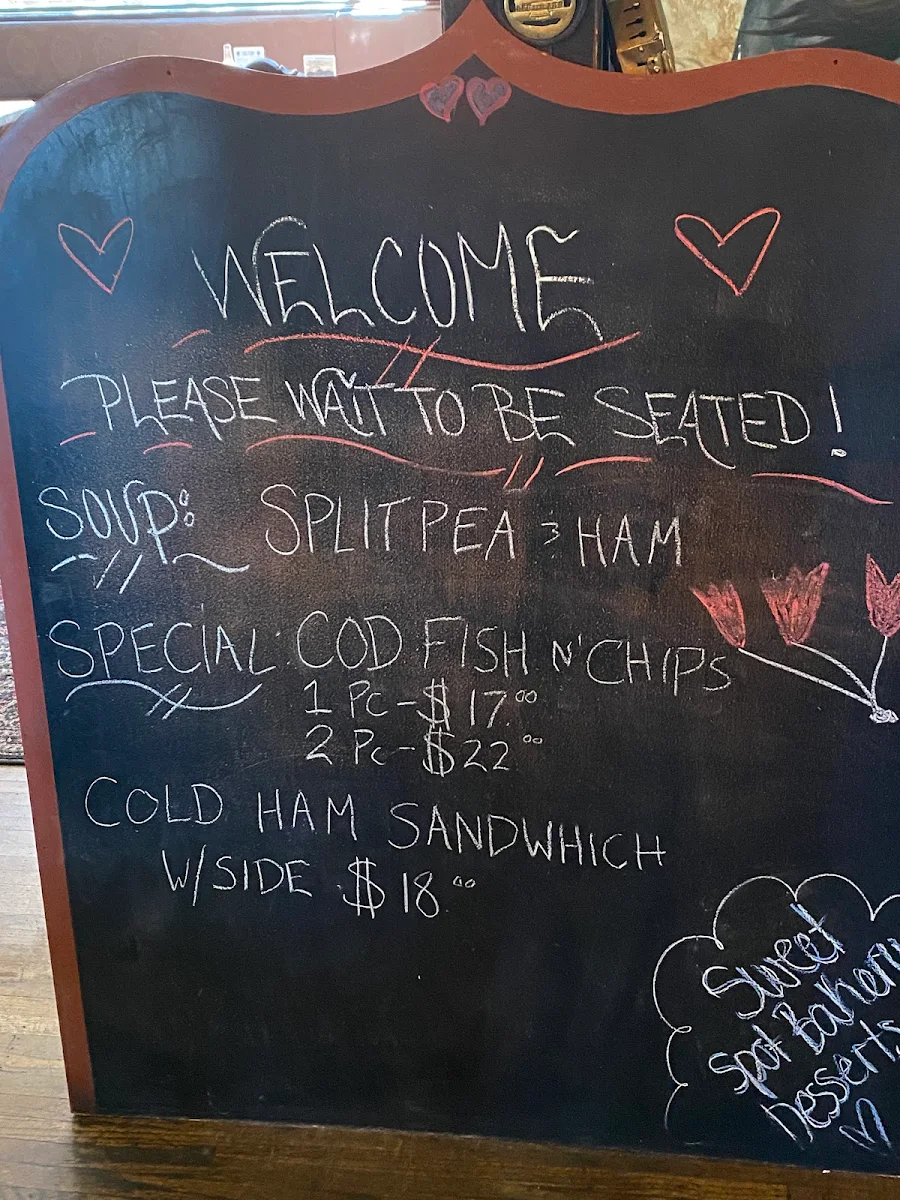 WELCOME
PLEASE WAIT TO BE SEATED!
SOUP: SPLIT PEA & HAM
SPECIAL: COD FISH N' CHIPS
1 Pc - $17.00
2 Pc - $22.00
COLD HAM SANDWHICH
W/SIDE $18.00
Sweet
Spot Bakery
Desserts